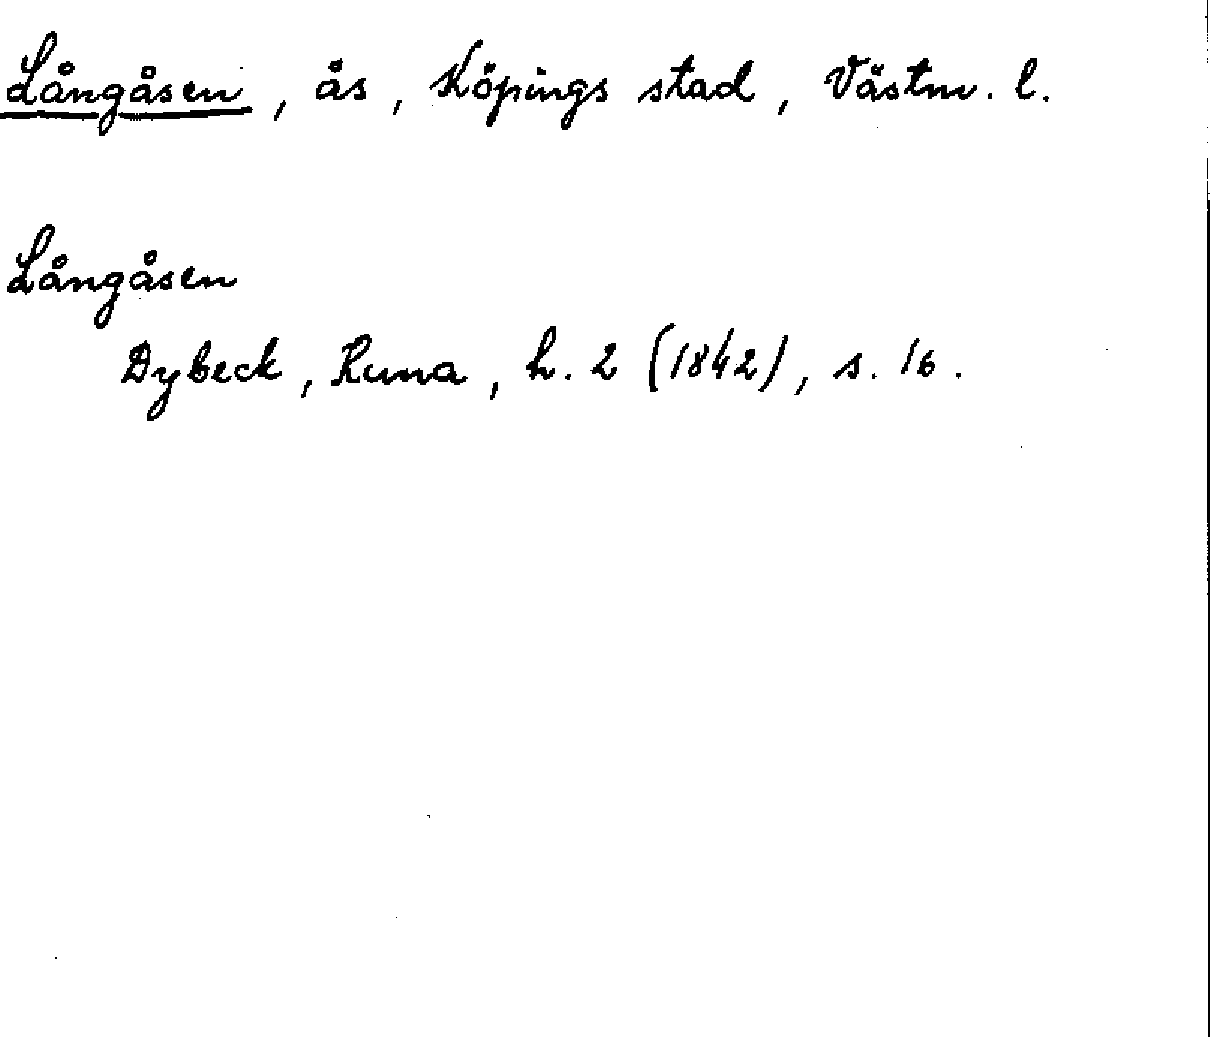 Långåsen, ås, Köpings stad, Västm. l.
Långåsen
Dybeck, Runa, h. 2 (1842), s. 16.